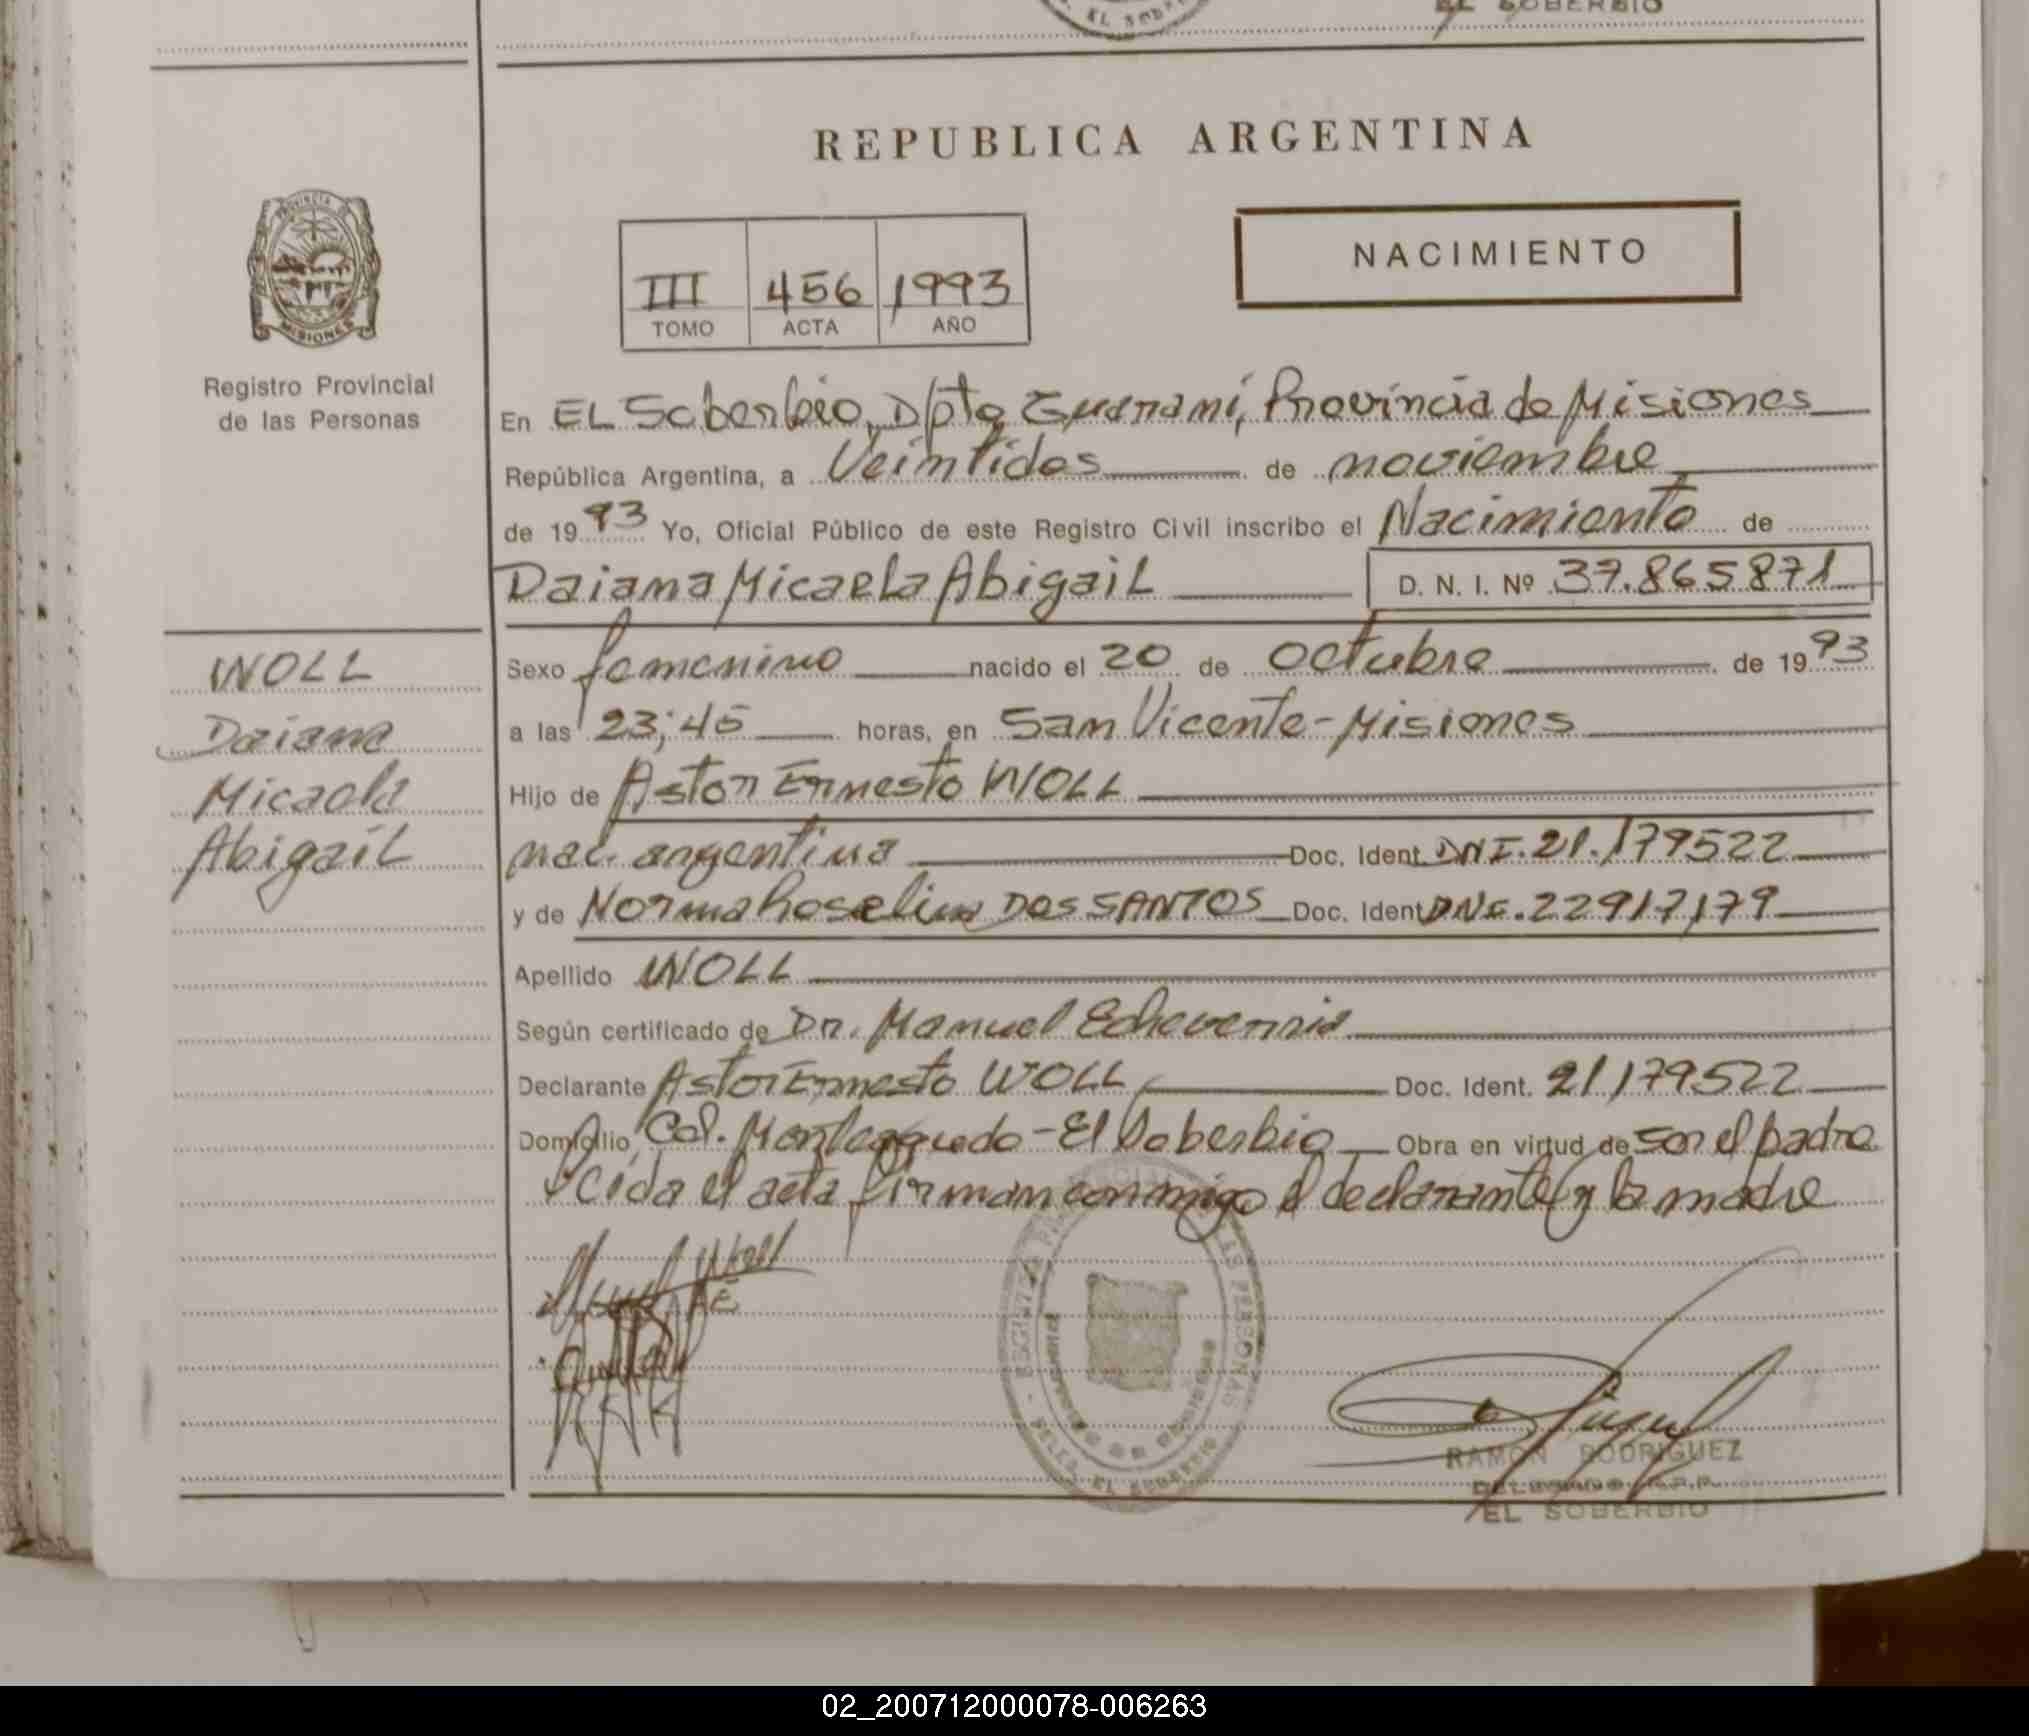 EL SOBERBIO
REPUBLICA ARGENTINA
PROVINCIA DE
MISIONES
Registro Provincial
de las Personas
III 456 1993
TOMO ACTA AÑO
NACIMIENTO
En EL Soberbio, Dpto Guarani, Provincia de Misiones
República Argentina, a Veintidos de noviembre
de 1993 Yo, Oficial Público de este Registro Civil inscribo el Nacimiento de
Daiana Micaela Abigail D. N. I. Nº 37.865871
Sexo femenino nacido el 20 de Octubre de 1993
a las 23;45 horas, en San Vicente - Misiones
Hijo de Astor Ernesto WOLL
nac. argentina Doc. Ident. DNI. 21.179522
y de Norma Roselina DOS SANTOS Doc. Ident. DNI. 22917179
Apellido WOLL
Según certificado de Dr. Manuel Echeverria
Declarante Astor Ernesto WOLL Doc. Ident. 21179522
Domicilio Col. Monteagudo - El Soberbio Obra en virtud de ser el padre
Leida el acta firman conmigo el declarante y la madre
WOLL
Daiana
Micaela
Abigail
Woll
EL SOBERBIO
RAMON RODRIGUEZ
EL SOBERBIO
02_200712000078-006263